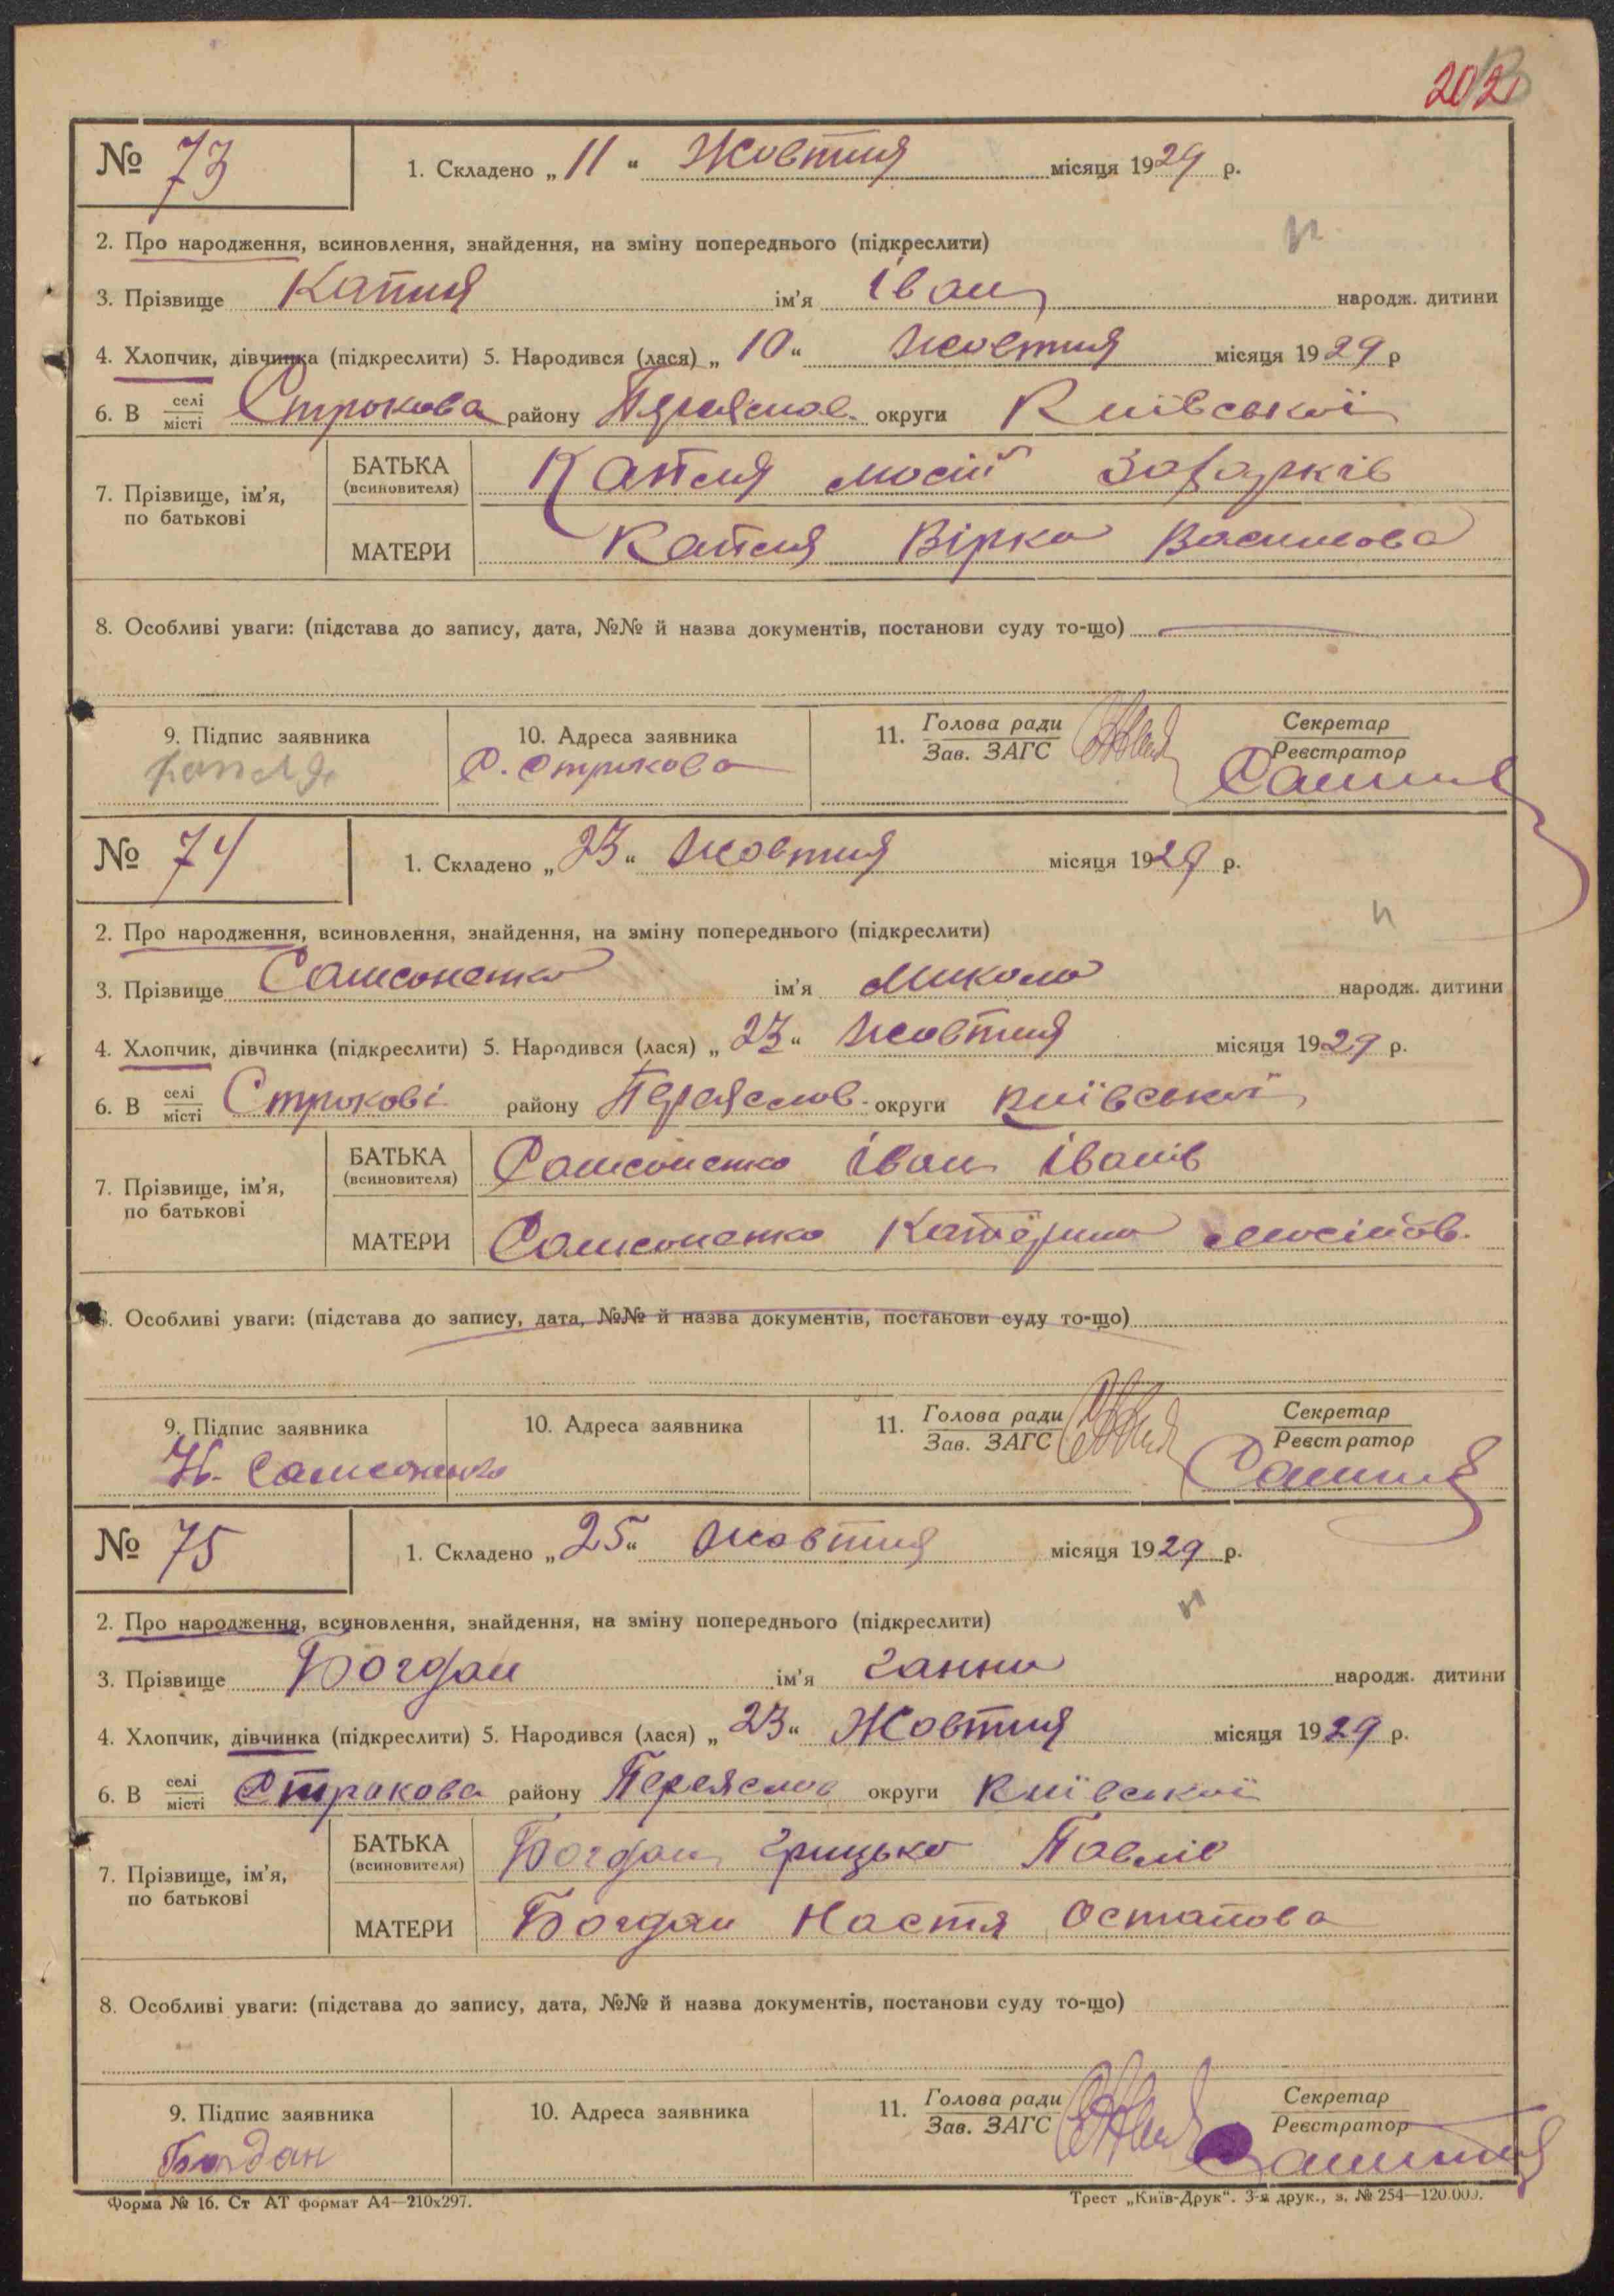 202
№ 73
1. Складено „11“ Жовтня місяця 1929 р.
2. Про народження, всиновлення, знайдення, на зміну попереднього (підкреслити)
3. Прізвище Капля ім'я Іван народж. дитини
4. Хлопчик, дівчинка (підкреслити) 5. Народився (лася) „10“ Жовтня місяця 1929 р
6. В селі місті Строкова району Переяслов. округи Київської
7. Прізвище, ім'я, по батькові
БАТЬКА (всиновителя) Капля Мосій
МАТЕРИ Капля Вірка Василова
8. Особливі уваги: (підстава до запису, дата, №№ й назва документів, постанови суду то-що)
9. Підпис заявника
Капля
10. Адреса заявника
С. Строкова
11. Голова ради
Зав. ЗАГС
Секретар
Реєстратор
№ 74
1. Складено „23“ Жовтня місяця 1929 р.
2. Про народження, всиновлення, знайдення, на зміну попереднього (підкреслити)
3. Прізвище Самсоненко ім'я Микола народж. дитини
4. Хлопчик, дівчинка (підкреслити) 5. Народився (лася) „23“ Жовтня місяця 1929 р.
6. В селі місті Строкові району Переяслов. округи Київської
7. Прізвище, ім'я, по батькові
БАТЬКА (всиновителя) Самсоненко Іван Іванів
МАТЕРИ Самсоненко Катерина Мосійов.
8. Особливі уваги: (підстава до запису, дата, №№ й назва документів, постанови суду то-що)
9. Підпис заявника
Н. Самсоненко
10. Адреса заявника
11. Голова ради
Зав. ЗАГС
Секретар
Реєстратор
№ 75
1. Складено „25“ Жовтня місяця 1929 р.
2. Про народження, всиновлення, знайдення, на зміну попереднього (підкреслити)
3. Прізвище Богдан ім'я Ганна народж. дитини
4. Хлопчик, дівчинка (підкреслити) 5. Народився (лася) „23“ Жовтня місяця 1929 р.
6. В селі місті Строкова району Переяслов округи Київської
7. Прізвище, ім'я, по батькові
БАТЬКА (всиновителя) Богдан Грицько Павлів
МАТЕРИ Богдан Настя Остапова
8. Особливі уваги: (підстава до запису, дата, №№ й назва документів, постанови суду то-що)
9. Підпис заявника
Богдан
10. Адреса заявника
11. Голова ради
Зав. ЗАГС
Секретар
Реєстратор
Форма № 16. Ст АТ формат А4—210х297.
Трест „Київ-Друк“. 3-я друк., з. № 254—120.000.